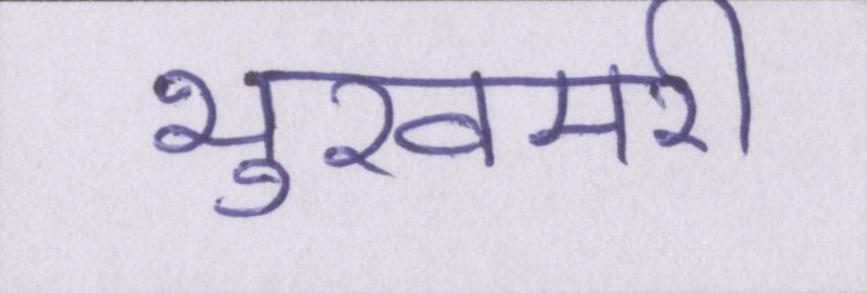 भुखमरी